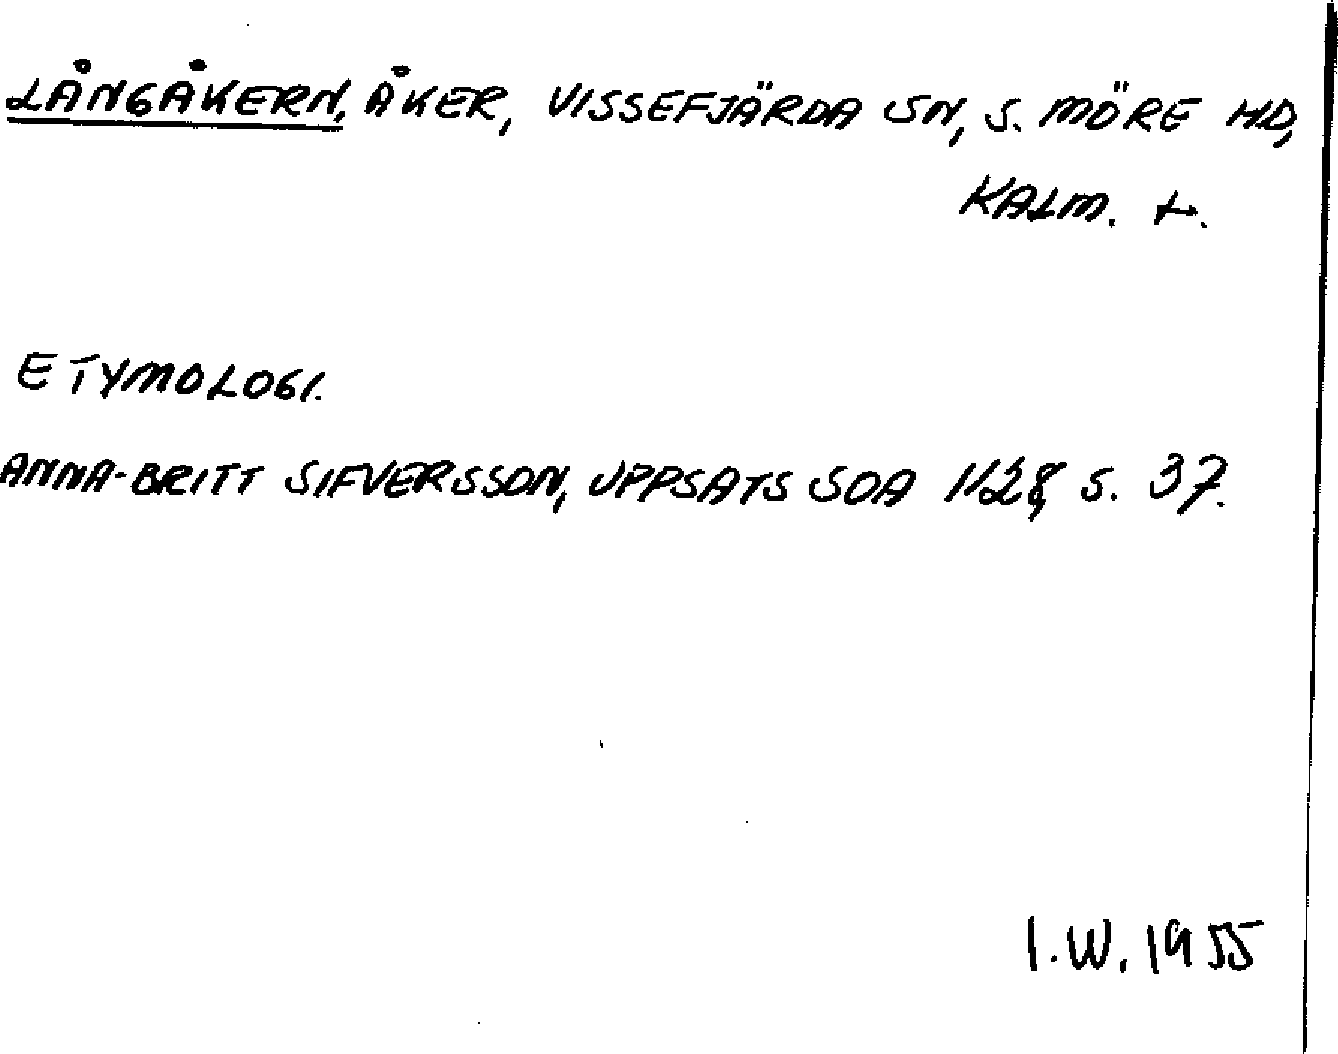 LÅNGÅKERN, ÅKER, VISSEFJÄRDA SN, S. MÖRE HD,
KALM. L.
ETYMOLOGI.
ANNA-BRITT SIFVERSSON, UPPSATS SOA 1128, S. 37.
I.W. 1955